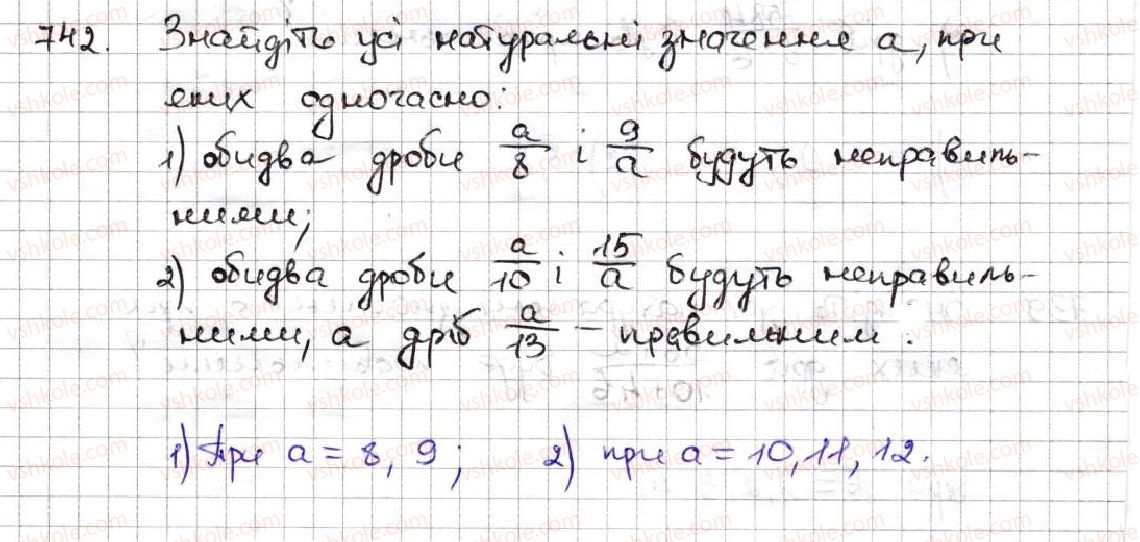 742. Знайдіть усі натуральні значення a, при
яких одночасно:
1) обидва дроби a/8 і 9/a будуть неправиль-
ними;
2) обидва дроби a/10 і 15/a будуть неправиль-
ними, а дріб a/13 – правильним.
1) При a = 8, 9; 2) при a = 10, 11, 12.